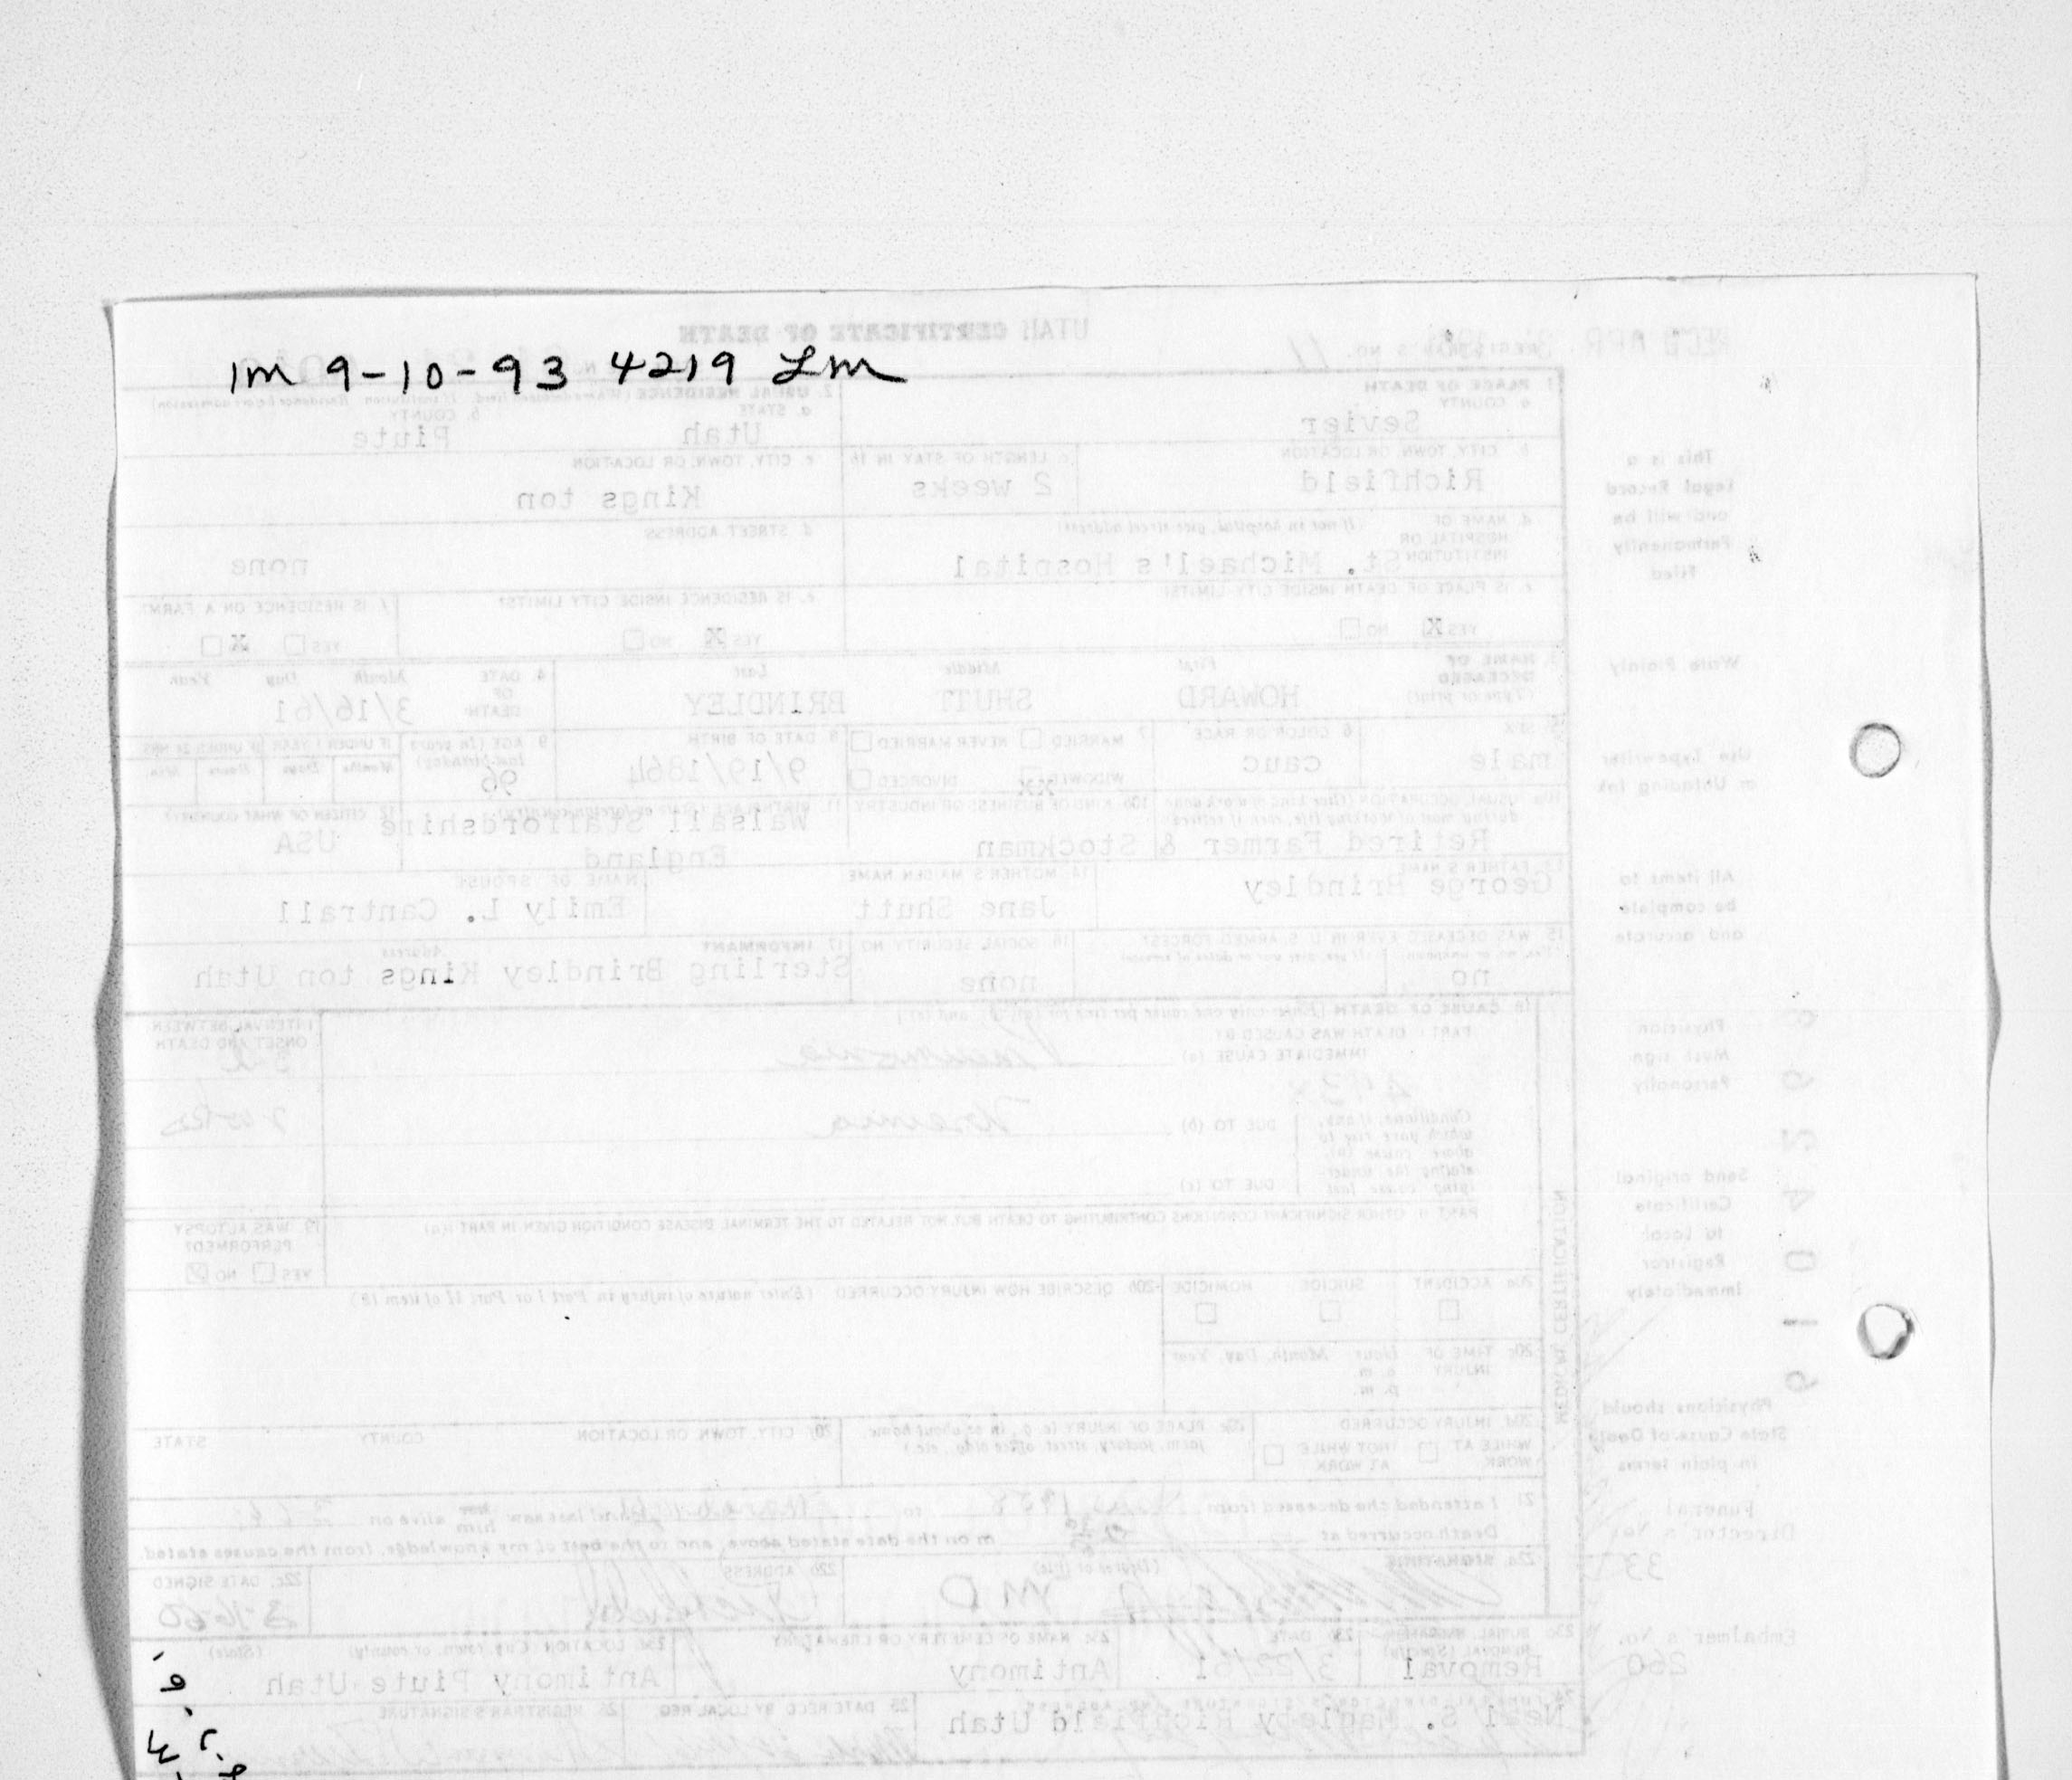 1m 9-10-93 4219 Lm
UTAH CERTIFICATE OF DEATH
REC'D APR
REGISTRAR'S NO. 11
1. PLACE OF DEATH
a. COUNTY
Sevier
2. USUAL RESIDENCE
a. STATE
Utah
b. COUNTY
Piute
b. CITY, TOWN OR LOCATION
Richfield
c. LENGTH OF STAY IN 1b
2 weeks
c. CITY, TOWN, OR LOCATION
Kings ton
d. NAME OF HOSPITAL OR INSTITUTION (If not in hospital, give street address)
St. Michael's Hospital
d. STREET ADDRESS
none
e. IS PLACE OF DEATH INSIDE CITY LIMITS?
YES X NO
e. IS RESIDENCE INSIDE CITY LIMITS?
YES X NO
f. IS RESIDENCE ON A FARM?
YES X
NAME OF DECEASED (Type or print)
First Middle Last
HOWARD SHUTT BRINDLEY
4. DATE OF DEATH
Month Day Year
3/16/61
5. SEX
male
6. COLOR OR RACE
cauc
7. MARRIED NEVER MARRIED
WIDOWED xx DIVORCED
8. DATE OF BIRTH
9/19/1864
9. AGE (In years last birthday)
96
IF UNDER 1 YEAR
Months Days
IF UNDER 24 HRS
Hours Min.
10a. USUAL OCCUPATION (Give kind of work done during most of working life, even if retired)
Retired Farmer & Stockman
10b. KIND OF BUSINESS OR INDUSTRY
11. BIRTHPLACE (State or foreign country)
Walsall Staffordshire
England
12. CITIZEN OF WHAT COUNTRY?
USA
13. FATHER'S NAME
George Brindley
14. MOTHER'S MAIDEN NAME
Jane Shutt
NAME OF SPOUSE
Emily L. Cantrall
15. WAS DECEASED EVER IN U. S. ARMED FORCES?
no
16. SOCIAL SECURITY NO.
none
17. INFORMANT Address
Sterling Brindley Kings ton Utah
18. CAUSE OF DEATH [Enter only one cause per line for (a), (b), and (c)]
PART I. DEATH WAS CAUSED BY:
IMMEDIATE CAUSE (a) Pneumonia
INTERVAL BETWEEN ONSET AND DEATH
Conditions, if any, which gave rise to above cause (a), stating the under-lying cause last
DUE TO (b) Uremia
DUE TO (c)
PART II. OTHER SIGNIFICANT CONDITIONS CONTRIBUTING TO DEATH BUT NOT RELATED TO THE TERMINAL DISEASE CONDITION GIVEN IN PART I(a)
19. WAS AUTOPSY PERFORMED?
YES NO
20a. ACCIDENT SUICIDE HOMICIDE
20b. DESCRIBE HOW INJURY OCCURRED (Enter nature of injury in Part I or Part II of item 18)
20c. TIME OF INJURY Hour Month, Day, Year
a. m.
p. m.
20d. INJURY OCCURRED
WHILE AT WORK NOT WHILE AT WORK
20e. PLACE OF INJURY (e. g., in or about home, farm, factory, street, office bldg., etc.)
20f. CITY, TOWN, OR LOCATION COUNTY STATE
MEDICAL CERTIFICATION
21. I attended the deceased from 1958 to and last saw him alive on
Death occurred at m on the date stated above, and to the best of my knowledge, from the causes stated.
22a. SIGNATURE (Degree or title)
M D
22b. ADDRESS
Richfield
22c. DATE SIGNED
3-16-60
23a. BURIAL, REMOVAL (Specify)
Removal
23b. DATE
3/22/61
23c. NAME OF CEMETERY OR CREMATORY
Antimony
23d. LOCATION (City, town, or county) (State)
Antimony Piute Utah
24. FUNERAL DIRECTOR'S SIGNATURE AND ADDRESS
Neal S. Magleby Richfield Utah
25. DATE RECD BY LOCAL REG.
26. REGISTRAR'S SIGNATURE
This is a
Legal Record
and will be
Permanently
Filed
Write Plainly
Use Typewriter
or Unfading Ink
All items to
be complete
and accurate
Physician
Must sign
Personally
Send original
Certificate
to Local
Registrar
Immediately
Physicians should
State Cause of Death
in plain terms
Funeral
Director's No.
33
Embalmer's No.
260